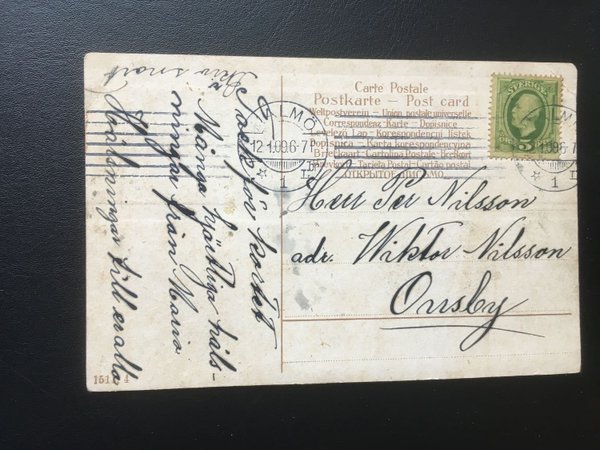 Carte Postale
Postkarte – Post card
Weltpostverein – Union postale universelle
Correspondenz-Karte – Dopisnice
Levelező Lap – Korespondenční lístek
Dopisnica – Karta korespondencyjna
Briefkaart – Cartolina Postale – Brefkort
Brevkort – Tarjeta Postal – Cartão postal
ОТКРЫТОЕ ПИСЬМО
SVERIGE
5
MALMÖ
12.1.09.6-7
1
MALMÖ
1.09.6-7
1
Herr Per Nilsson
adr. Wiktor Nilsson
Onsby
Skriv snart
Tack för kortet
Många hjärtliga häls-
ningar från Maria
Hälsningar till er alla
151
4